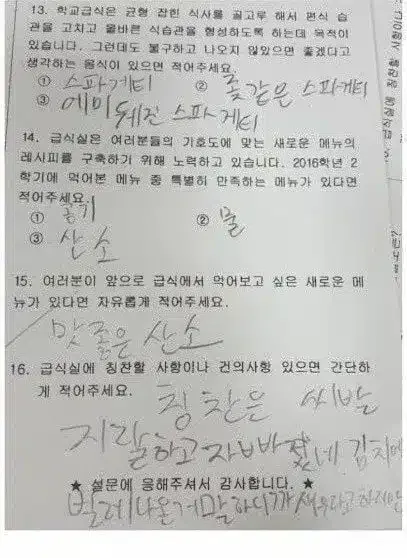 13. 학교급식은 균형 잡힌 식사를 골고루 해서 편식 습
관을 고치고 올바른 식습관을 형성하도록 하는데 목적이
있습니다. 그런데도 불구하고 나오지 않았으면 좋겠다고
생각하는 음식이 있으면 적어주세요.
① 스파게티 ② 좆같은 스파게티
③ 에미 뒤진 스파게티
14. 급식실은 여러분들의 기호도에 맞는 새로운 메뉴의
레시피를 구축하기 위해 노력하고 있습니다. 2016학년 2
학기에 먹어본 메뉴 중 특별히 만족하는 메뉴가 있다면
적어주세요.
① 공기 ② 물
③ 산소
15. 여러분이 앞으로 급식에서 먹어보고 싶은 새로운 메
뉴가 있다면 자유롭게 적어주세요.
맛좋은 산소
16. 급식실에 칭찬할 사항이나 건의사항 있으면 간단하
게 적어주세요.
칭찬은 씨발
지랄하고 자빠졌네 김치에
★ 설문에 응해주셔서 감사합니다. ★
벌레 나온거 말하니까 새우라고 하지만